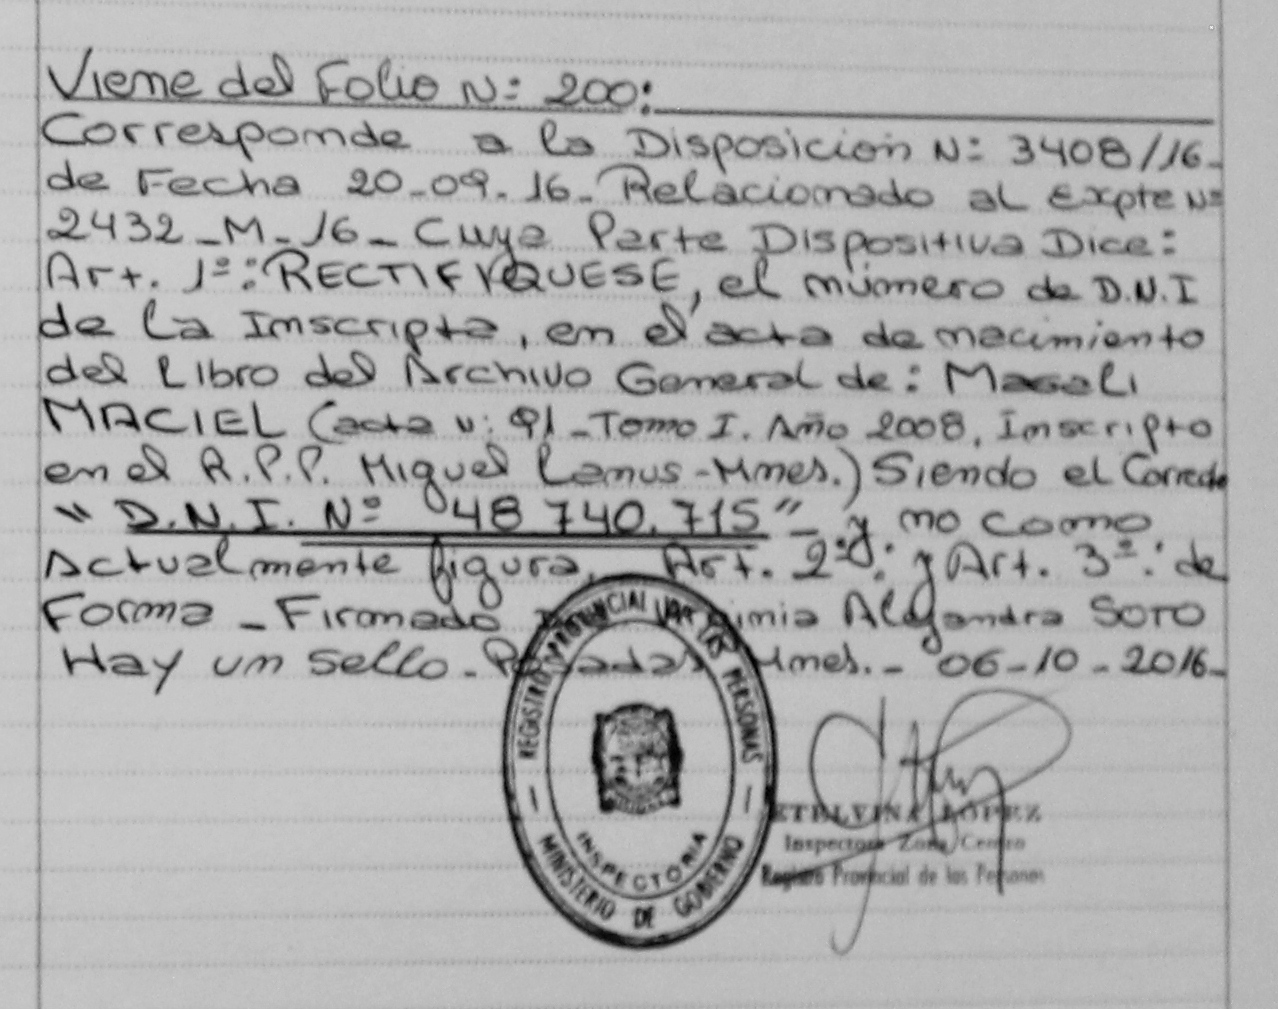 Viene del Folio N: 200:
Corresponde a la Disposicion N: 3408/16-
de Fecha 20-09-16- Relacionado al Expte Nº
2432-M-16- Cuya Parte Dispositiva Dice:
Art. 1º: RECTIFIQUESE, el número de D.N.I
de la Inscripta, en el acta de nacimiento
del Libro del Archivo General de: Magali
MACIEL (acta N: 91-Tomo I. Año 2008, Inscripto
en el R.P.P. Miguel Lanus-Mnes.) Siendo el Correcto
"D.N.I. Nº 48 740.715"- y no como
Actualmente figura. Art. 2º: y Art. 3º: de
Forma - Firmado Alejandra SOTO
Hay un sello - Posadas Mnes. - 06-10-2016-
REGISTRO PROVINCIAL DE LAS PERSONAS
INSPECTORIA
MINISTERIO DE GOBIERNO
ETELVINA LOPEZ
Inspectora Zona Centro
Registro Provincial de las Personas